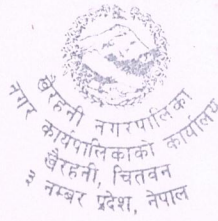 खैरहनी नगरपालिका
नगर कार्यपालिकाको कार्यालय
खैरहनी, चितवन
३ नम्बर प्रदेश, नेपाल